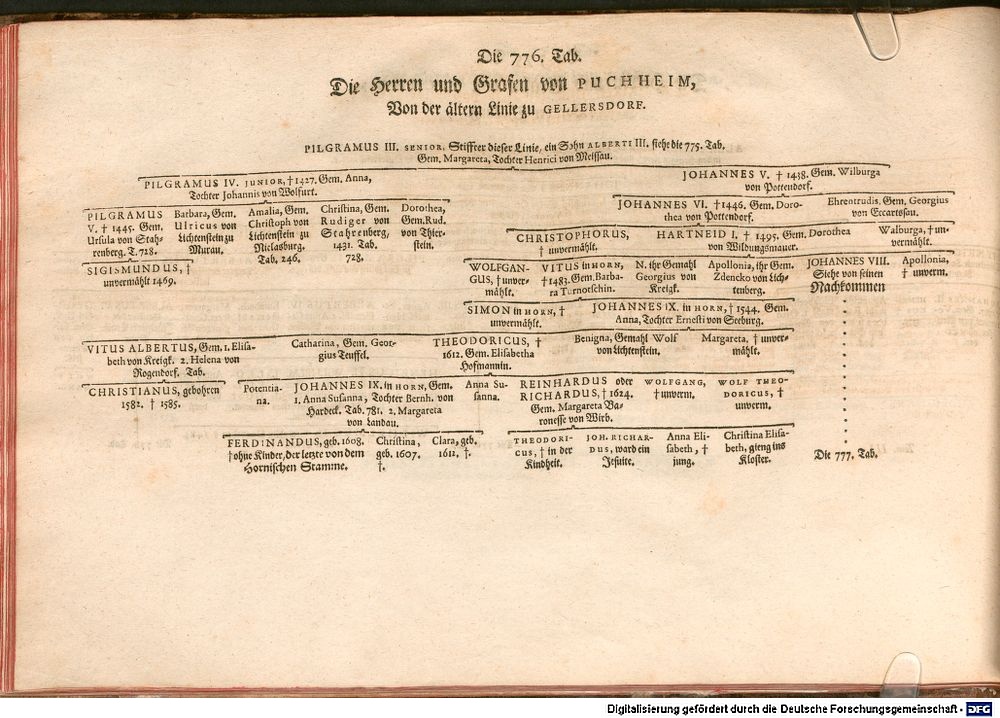 Die 776. Tab.
Die Herren und Grafen von PUCHHEIM,
Von der ältern Linie zu GELLERSDORF.
PILGRAMUS III. SENIOR, Stiffter dieser Linie, ein Sohn ALBERTI III. siehe die 775. Tab.
Gem. Margareta, Tochter Henrici von Meissau.
PILGRAMUS IV. JUNIOR, † 1427. Gem. Anna,
Tochter Johannis von Wolfurt.
JOHANNES V. † 1438. Gem. Wilburga
von Pottendorf.
PILGRAMUS
V. † 1445. Gem.
Ursula von Stah-
renberg. T. 728.
Barbara, Gem.
Ulricus von
Lichtenstein zu
Murau.
Amalia, Gem.
Christoph von
Lichtenstein zu
Niclasburg.
Tab. 246.
Christina, Gem.
Rudiger von
Stahrenberg,
1431. Tab.
728.
Dorothea,
Gem. Rud.
von Thier-
stein.
JOHANNES VI. † 1446. Gem. Doro-
thea von Pottendorf.
Ehrentrudis, Gem. Georgius
von Eccartsau.
SIGISMUNDUS, †
unvermählt 1469.
CHRISTOPHORUS,
† unvermählt.
HARTNEID I. † 1495. Gem. Dorothea
von Wildungsmauer.
Walburga, † un-
vermählt.
WOLFGAN-
GUS, † unver-
mählt.
VITUS in HORN,
† 1483. Gem. Barba-
ra Turnotschin.
N. ihr Gemahl
Georgius von
Kreigk.
Apollonia, ihr Gem.
Zdencko von Lich-
tenberg.
JOHANNES VIII.
Siehe von seinen
Nachkommen
Apollonia,
† unverm.
SIMON in HORN, †
unvermählt.
JOHANNES IX. in HORN, † 1544. Gem.
Anna, Tochter Ernesti von Seeburg.
VITUS ALBERTUS, Gem. 1. Elisa-
beth von Kreigk. 2. Helena von
Rogendorf. Tab.
Catharina, Gem. Geor-
gius Teuffel.
THEODORICUS, †
1612. Gem. Elisabetha
Hofmannin.
Benigna, Gemahl Wolf
von Lichtenstein.
Margareta, † unver-
mählt.
CHRISTIANUS, gebohren
1582. † 1585.
Potentia-
na.
JOHANNES IX. in HORN, Gem.
1. Anna Susanna, Tochter Bernh. von
Hardeck. Tab. 781. 2. Margareta
von Landau.
Anna Su-
sanna.
REINHARDUS oder
RICHARDUS, † 1624.
Gem. Margareta Ba-
ronesse von Wirb.
WOLFGANG,
† unverm.
WOLF THEO-
DORICUS, †
unverm.
FERDINANDUS, geb. 1608.
† ohne Kinder, der letzte von dem
Hornischen Stamme.
Christina,
geb. 1607.
†.
Clara, geb.
1612. †.
THEODORI-
CUS, † in der
Kindheit.
JOH. RICHAR-
DUS, ward ein
Jesuite.
Anna Eli-
sabeth, †
jung.
Christina Elisa-
beth, gieng ins
Kloster.
Die 777. Tab.
Digitalisierung gefördert durch die Deutsche Forschungsgemeinschaft - DFG